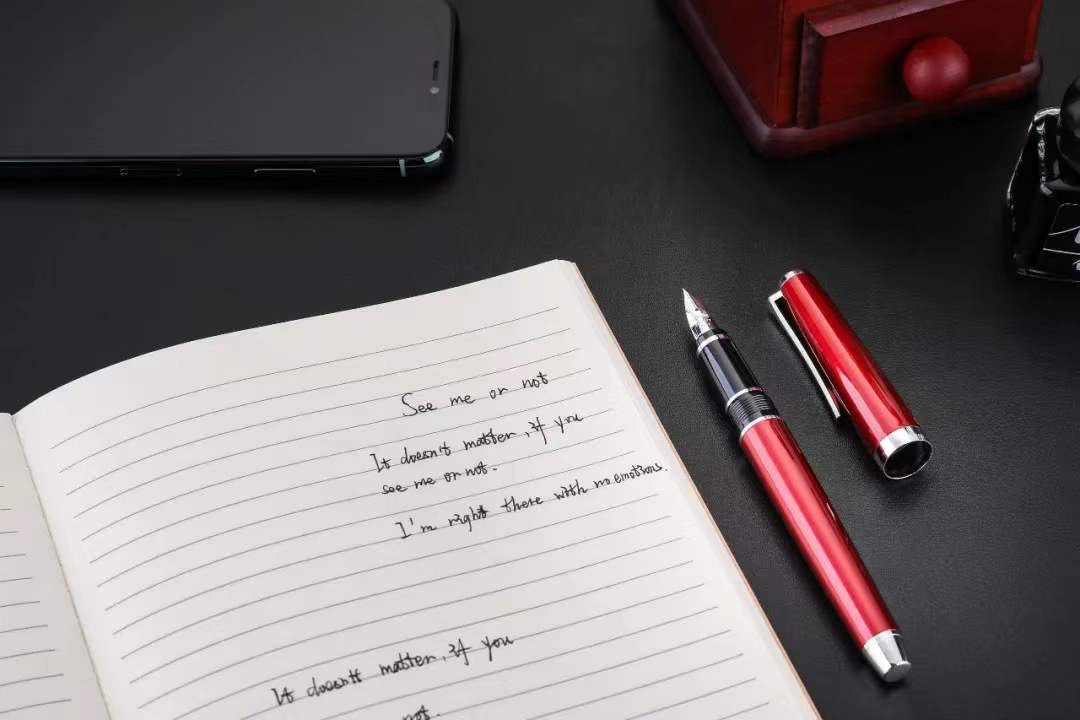 See me or not
It doesn't matter, if you
see me or not.
I'm right there with no emotions.
It doesn't matter, if you
not.